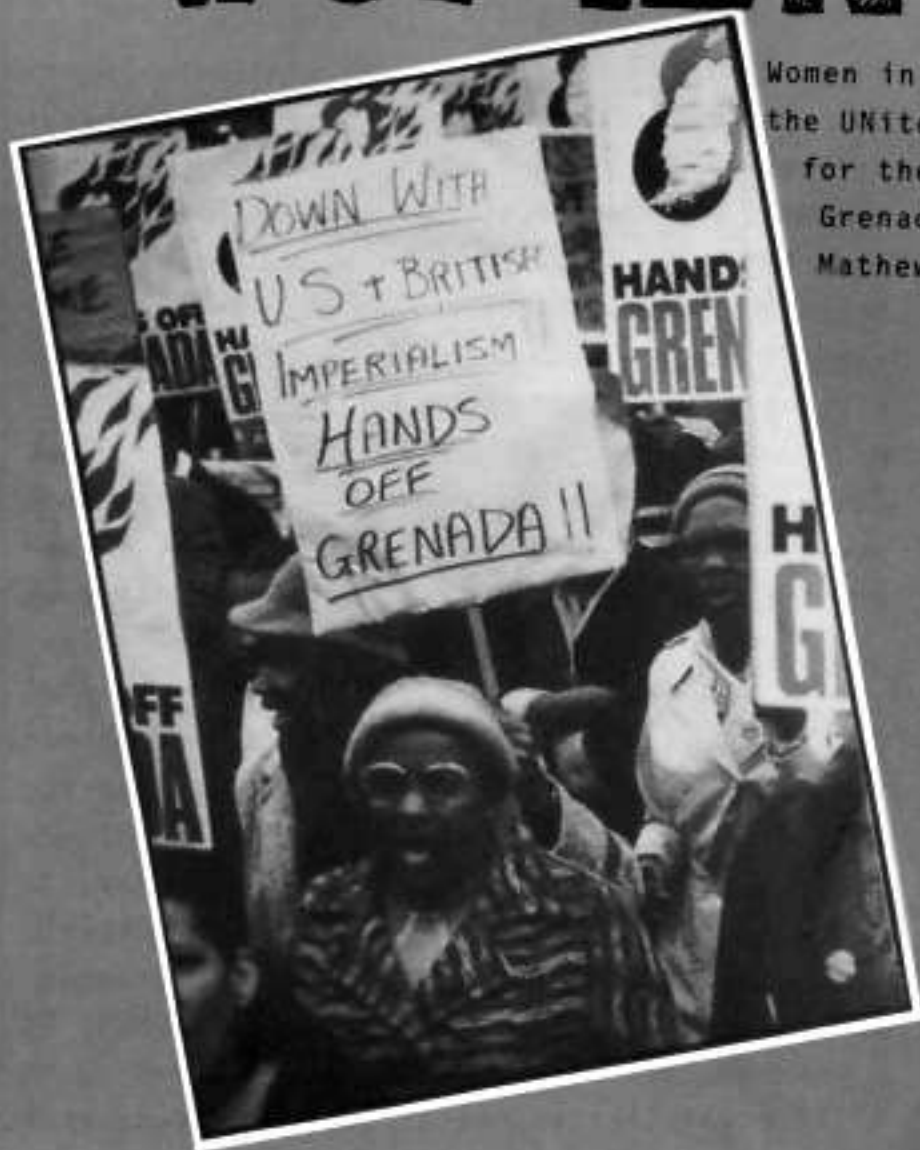 Women in
the UNite
for the
Grenad
Mathew
DOWN WITH
US + BRITISH
IMPERIALISM
HANDS
OFF
GRENADA!!
HAND
GREN
S OFF
ADA
HA
G
H
G
FF
A